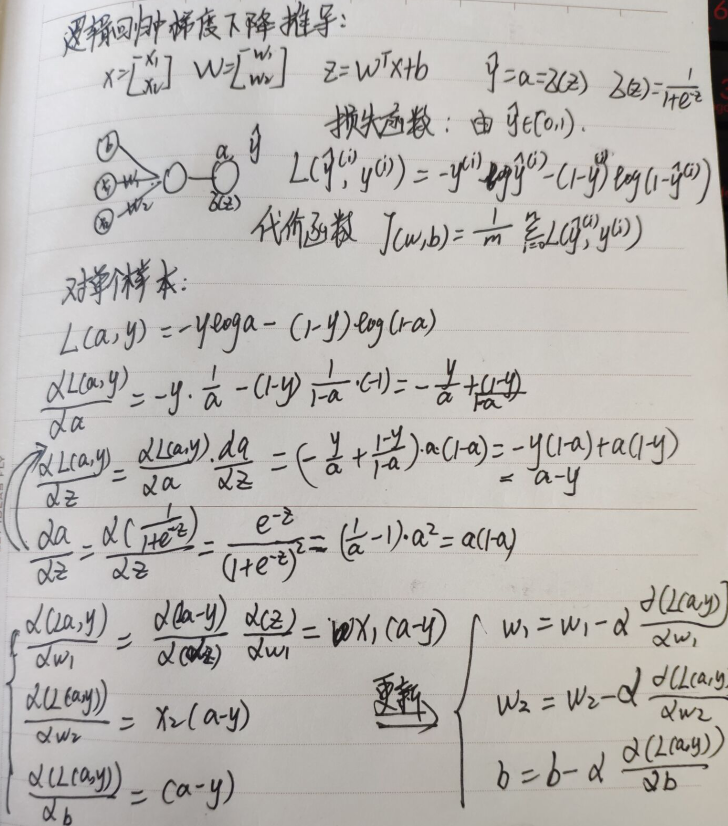 逻辑回归中梯度下降推导:
x=[x₁ x₂] W=[w₁ w₂] z=WᵀX+b ŷ=a=δ(z) δ(z)=1/(1+e^-z)
损失函数: 由 ŷ∈(0,1).
b x₁ w₁ x₂ w₂ a δ(z) ŷ
L(ŷ⁽ⁱ⁾, y⁽ⁱ⁾) = -y⁽ⁱ⁾log ŷ⁽ⁱ⁾-(1-y⁽ⁱ⁾)log(1-ŷ⁽ⁱ⁾)
代价函数 J(w,b) = 1/m Σ_{i=0}^{n} L(ŷ⁽ⁱ⁾, y⁽ⁱ⁾)
对单个样本:
L(a,y) = -yloga - (1-y)log(1-a)
dL(a,y)/da = -y·1/a - (1-y) 1/(1-a)·(-1) = -y/a + (1-y)/(1-a)
dL(a,y)/dz = dL(a,y)/da · da/dz = (-y/a + (1-y)/(1-a))·a(1-a) = -y(1-a)+a(1-y)
= a-y
da/dz = d(1/(1+e^-z))/dz = e^-z/(1+e^-z)² = (1/a -1)·a² = a(1-a)
d(La,y)/dw₁ = d(La-y)/d(z) d(z)/dw₁ = x₁(a-y)
d(L(a,y))/dw₂ = x₂(a-y)
d(L(a,y))/db = (a-y)
更新
w₁ = w₁ - α d(L(a,y)/dw₁
w₂ = w₂ - α d(L(a,y)/dw₂
b = b - α d(L(a,y))/db